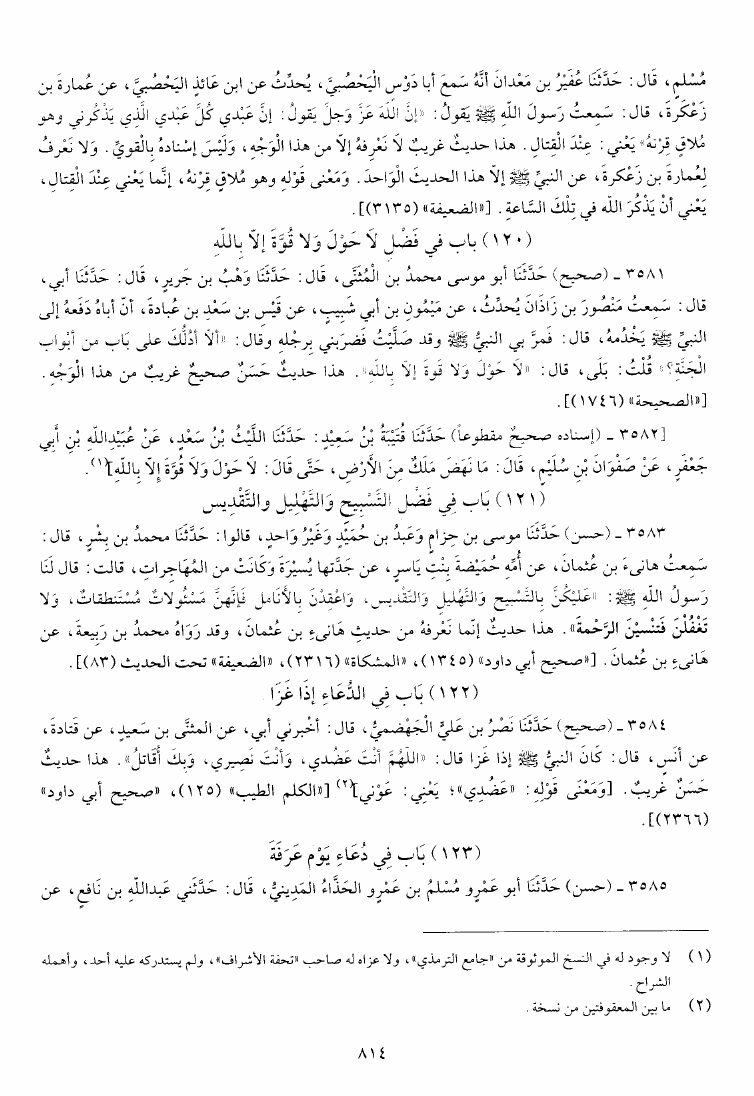 مُسْلمٍ، قال: حَدَّثَنَا عُفَيْرُ بن مَعْدانَ أنَّهُ سَمعَ أبا دَوْسٍ الْيَحْصُبيَّ، يُحدِّثُ عن ابن عَائذٍ اليَحْصُبيِّ، عن عُمارةَ بن
زَعْكرةَ، قال: سَمِعتُ رَسولَ اللهِ ﷺ يَقولُ: «إنَّ اللهَ عَزَّ وَجلَّ يَقولُ: إنَّ عَبْدي كُلَّ عَبْدي الَّذِي يَذْكُرني وهو
مُلاقٍ قِرْنَهُ» يَعْني: عِنْدَ الْقِتالِ. هذا حديثٌ غريبٌ لاَ نَعْرفهُ إلاَّ من هذا الْوَجْهِ، وَلَيْسَ إسْنادهُ بِالْقويِّ. ولا نَعْرفُ
لِعُمارةَ بن زَعْكرةَ، عن النبيِّ ﷺ إلاَّ هذا الحديثَ الْوَاحدَ. وَمَعْنى قَوْلهِ وهو مُلاقٍ قِرْنَهُ، إنَّما يَعْني عِنْدَ الْقِتالِ،
يَعْني أنْ يَذْكُرَ الله في تِلكَ السَّاعةِ. [«الضعيفة» (٣١٣٥)].
(١٢٠) باب في فَضْلِ لاَ حَوْلَ وَلا قُوَّةَ إلاّ بِاللهِ
٣٥٨١ ـ (صحيح) حَدَّثَنَا أبو موسى محمدُ بن الْمُثَنَّى، قال: حَدَّثَنَا وَهْبُ بن جَريرٍ، قال: حَدَّثَنَا أبي،
قال: سَمِعتُ مَنْصُورَ بن زَاذَانَ يُحدِّثُ، عن مَيْمُونِ بن أبي شَبِيبٍ، عن قَيْسِ بن سَعْدِ بن عُبادةَ، أنّ أباهُ دَفَعهُ إلى
النبيِّ ﷺ يَخْدُمهُ، قال: فَمرَّ بي النبيُّ ﷺ وقد صَلَّيْتُ فَضرَبَني بِرِجْلهِ وقال: «ألاَ أدُلُّكَ على بَابٍ من أبْوابِ
الْجَنَّةِ؟» قُلْتُ: بَلَى، قال: «لاَ حَوْلَ وَلا قَوةَ إلاَّ بِاللهِ». هذا حديثٌ حَسَنٌ صحيحٌ غريبٌ من هذا الْوَجْهِ.
[«الصحيحة» (١٧٤٦)].
[٣٥٨٢ ـ (إسناده صحيحٌ مقطوعاً) حَدَّثَنَا قُتَيْبَةُ بْنُ سَعِيْدٍ: حَدَّثَنَا اللَّيْثُ بْنُ سَعْدٍ، عَنْ عُبَيْدِاللهِ بْنِ أَبِي
جَعْفَرٍ، عَنْ صَفْوَانَ بْنِ سُلَيْمٍ، قَالَ: مَا نَهَضَ مَلَكٌ مِنَ الأَرْضِ، حَتَّى قَالَ: لاَ حَوْلَ وَلاَ قُوَّةَ إِلاَّ بِاللهِ](١).
(١٢١) بَاب فِي فَضْلِ التَّسْبِيحِ وَالتَّهْلِيلِ والتَّقْدِيسِ
٣٥٨٣ ـ (حسن) حَدَّثَنَا موسى بن حِزامٍ وَعَبدُ بن حُمَيْدٍ وَغَيْرُ وَاحدٍ، قالوا: حَدَّثَنَا محمدُ بن بِشْرٍ، قال:
سَمِعتُ هانىءَ بن عُثمانَ، عن أُمِّهِ حُمَيْضةَ بِنْتِ يَاسرٍ، عن جَدَّتها يُسيْرَةَ وَكَانَتْ من المُهَاجراتِ، قالت: قال لَنَا
رَسولُ اللهِ ﷺ: «عَليْكُنَّ بِالتَّسْبيحِ وَالتَّهْليلِ وَالتَّقْديسِ، وَاعْقدْنَ بِالأنَاملِ فَإنَّهنَّ مَسْئُولاتٌ مُسْتَنطقاتٌ، وَلا
تَغْفُلْنَ فَتنْسيْنَ الرَّحْمةَ». هذا حديثٌ إنَّما نَعْرفهُ من حديثِ هَانىءِ بن عُثْمانَ، وقد رَوَاهُ محمدُ بن رَبيعةَ، عن
هَانىءِ بن عُثمانَ. [«صحيح أبي داود» (١٣٤٥)، «المشكاة» (٢٣١٦)، «الضعيفة» تحت الحديث (٨٣)].
(١٢٢) بَاب فِي الدُّعَاءِ إذَا غَزَا
٣٥٨٤ ـ (صحيح) حَدَّثَنَا نَصْرُ بن عَليٍّ الْجَهْضميُّ، قال: أخْبرني أبي، عن المثنَّى بن سَعيدٍ، عن قَتادةَ،
عن أنَسٍ، قال: كَانَ النبيُّ ﷺ إذا غَزا قال: «اللَّهُمَّ أنْتَ عَضُدي، وَأنْتَ نَصِيري، وَبِكَ أُقَاتلُ». هذا حديثٌ
حَسَنٌ غريبٌ. [وَمَعْنَى قَوْلِهِ: «عَضُدِي»؛ يَعْنِي: عَوْنِي](٢) [«الكلم الطيب» (١٢٥)، «صحيح أبي داود»
(٢٣٦٦)].
(١٢٣) بَاب فِي دُعَاءِ يَوْمِ عَرَفَةَ
٣٥٨٥ ـ (حسن) حَدَّثَنَا أبو عَمْرٍو مُسْلمُ بن عَمْرٍو الحَذَّاءُ المَدِينيُّ، قال: حَدَّثَني عبداللهِ بن نَافعٍ، عن
(١) لا وجود له في النسخ الموثوقة من «جامع الترمذي»، ولا عزاه له صاحب «تحفة الأشراف»، ولم يستدركه عليه أحد، وأهمله
الشراح.
(٢) ما بين المعقوفتين من نسخة.
٨١٤